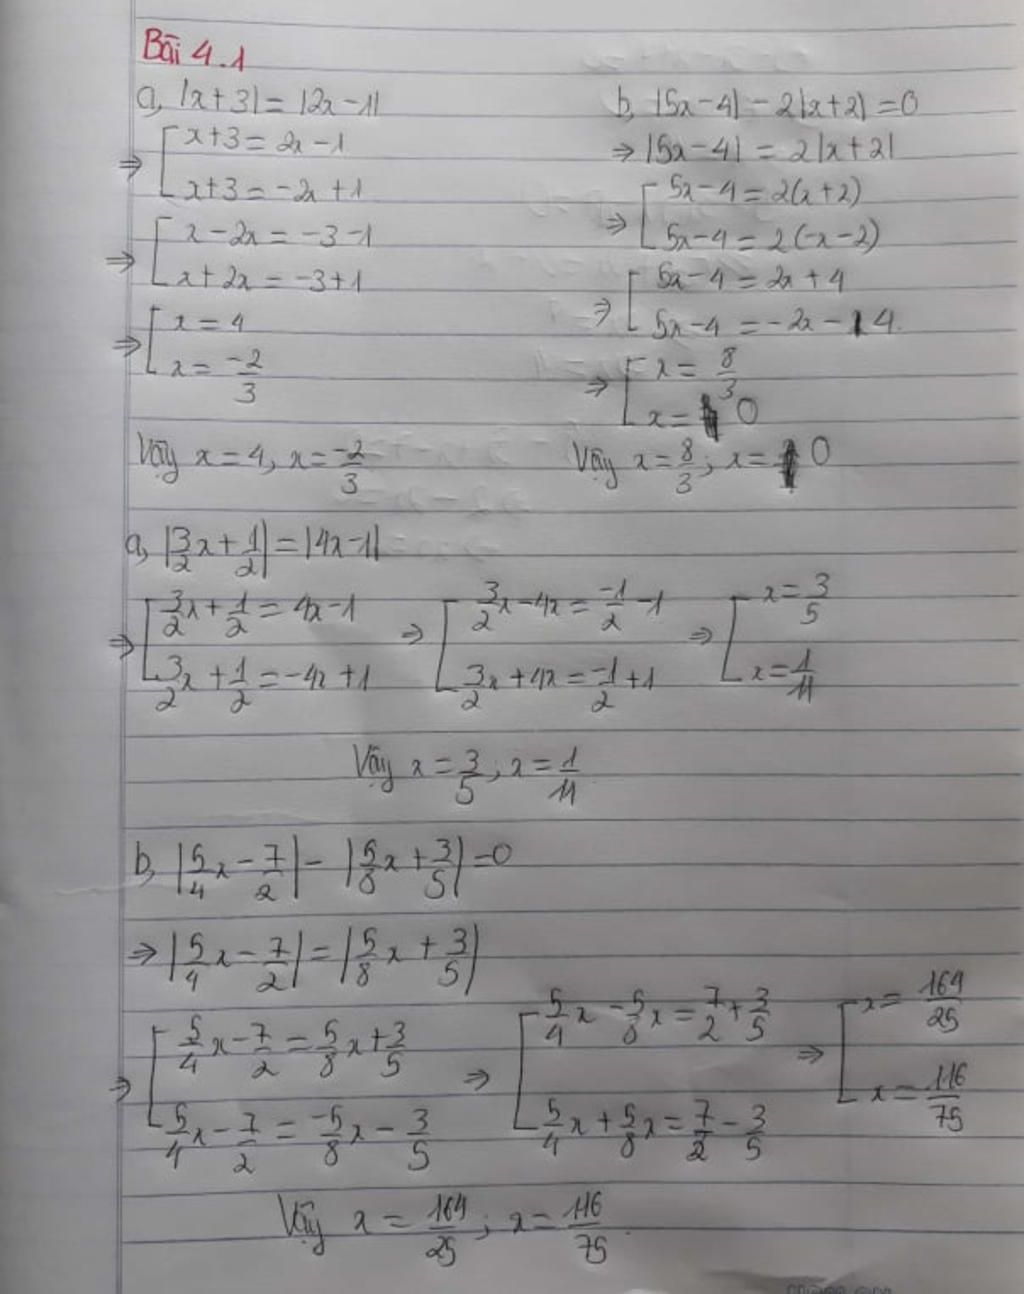 Bài 4.1
a, |x+3| = |2x-1|
⇒ [ x+3 = 2x-1
x+3 = -2x+1
⇒ [ x-2x = -3-1
x+2x = -3+1
⇒ [ x = 4
x = -2/3
Vậy x = 4, x = -2/3
b, |5x-4| - 2|x+2| = 0
⇒ |5x-4| = 2|x+2|
⇒ [ 5x-4 = 2(x+2)
5x-4 = 2(-x-2)
⇒ [ 5x-4 = 2x+4
5x-4 = -2x-4.
⇒ [ x = 8/3
x = 0
Vậy x = 8/3; x = 0
a, |3/2x + 1/2| = |4x-1|
⇒ [ 3/2x + 1/2 = 4x-1 ⇒ [ 3/2x-4x = -1/2-1 ⇒ [ x = 3/5
3/2x + 1/2 = -4x+1 3/2x+4x = -1/2+1 x = 1/11
Vậy x = 3/5; x = 1/11
b, |5/4x - 7/2| - |5/8x + 3/5| = 0
⇒ |5/4x - 7/2| = |5/8x + 3/5|
⇒ [ 5/4x - 7/2 = 5/8x + 3/5 ⇒ [ 5/4x - 5/8x = 7/2 + 3/5 ⇒ [ x = 164/25
5/4x - 7/2 = -5/8x - 3/5 5/4x + 5/8x = 7/2 - 3/5 x = 116/75
Vậy x = 164/25; x = 116/75.